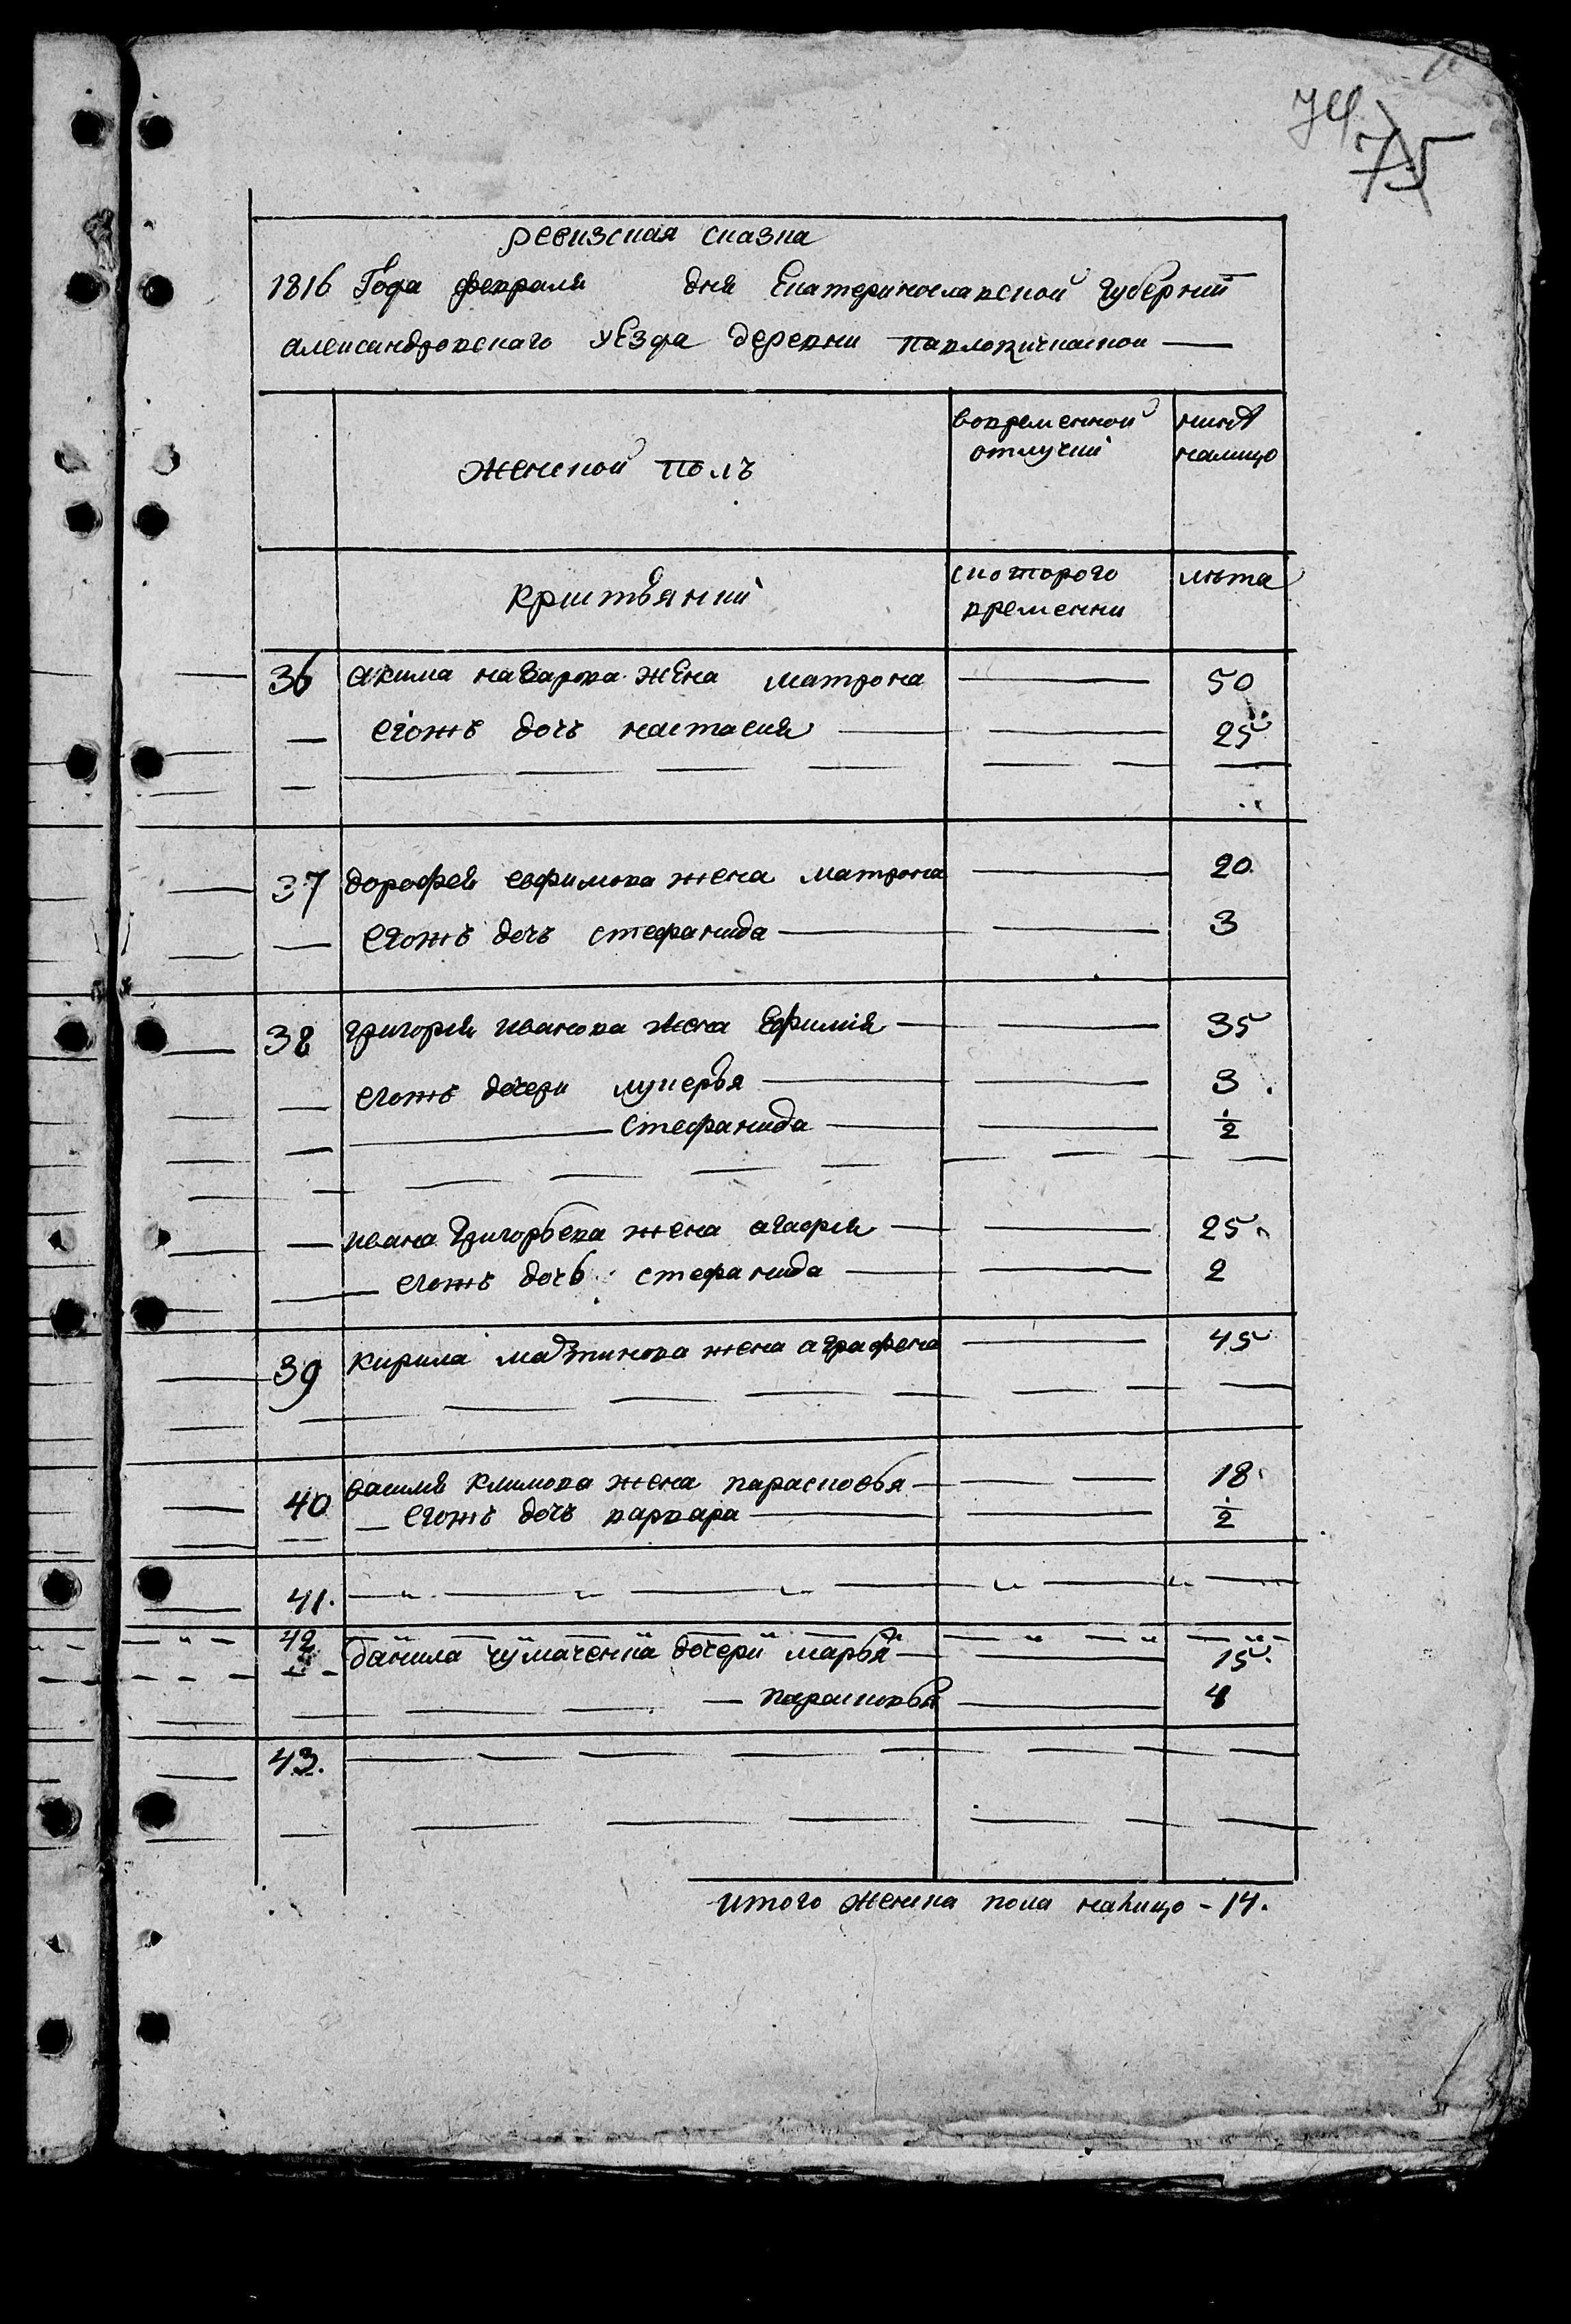 74
75
ревизская сказка
1816 Года февраля дня Екатеринославской губернии
александровского уезда деревни павловичкаской —
женской полъ
вовременной отлучки
ныне налицо
кристьянии
скоторого времянни
лета
36 акима назарова жена матрона — 50
— егожъ дочъ настасия — 25
37 дорофея евфимова жена матрона — 20
— егожъ дочъ стефанида — 3
38 григория иванова жена Ефимия — 35
— егожъ дочери лукерья — 3
— стефанида — 1/2
— ивана григорьева жена агафия — 25
— егожъ дочь стефанида — 2
39 кирила мартинова жена аграфена — 45
40 василя климова жена парасковья — 18
— егожъ дочъ варвара — 1/2
41.
42 данила чумаченка дочери марья — 15
— парасковья — 4
43.
итого женска пола налицо - 14.